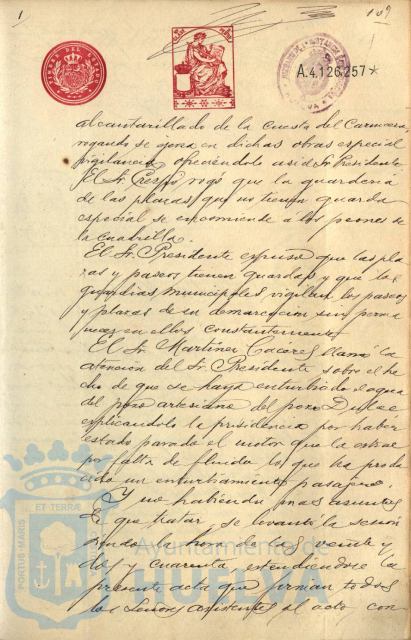 1
109
TIMBRE DEL ESTADO
A.4.126.257*
alcantarillado de la cuesta del Carmen
rogando se ponga en dichas obras especial
vigilancia ofreciéndolo así el Sr. Presidente
El Sr. Crespo rogó que la guardería
de las plazas que no tienen guarda
especial se encomiende a los peones de
la cuadrilla.
El Sr. Presidente expuso que las pla
zas y paseos tienen guardas y que los
guardias municipales vigilan los paseos
y plazas de su demarcación sin perma
necer en ellos constantemente
El Sr. Martínez Cácéres llamó la
atención del Sr. Presidente sobre el he
cho de que se haya enturbiado el agua
del pozo artesiano del pozo Dulce
explicándolo la presidencia por haber
estado parado el motor que la extrae
por falta de fluido lo que ha produ
cido un enturbiamiento pasajero.
Y no habiendo mas asuntos
de que tratar se levantó la sesión
siendo la hora de las veinte y
dos y cuarenta extendiéndose la
presente acta que firman todos
los Señores asistentes al acto con
PORTUS MARIS
ET TERRÆ
Ayuntamiento de
HUELVA